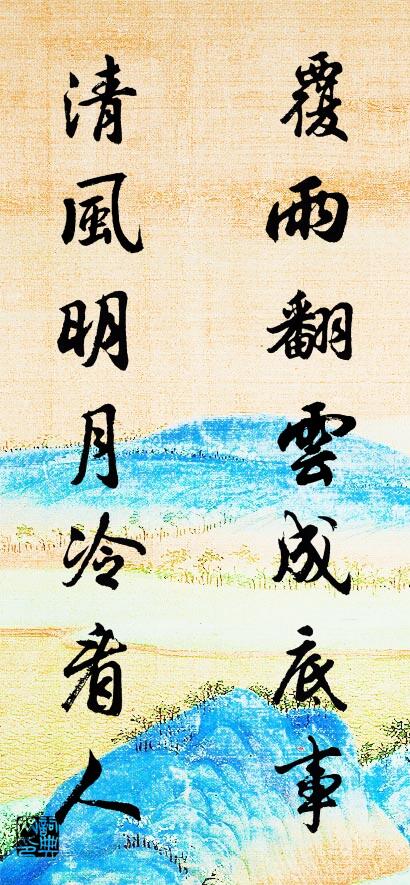 覆雨翻雲成底事
清風明月冷看人